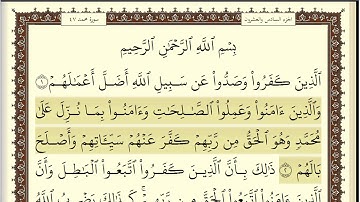 الجزء السادس والعشرون سورة محمد ٤٧
بِسْمِ اللَّهِ الرَّحْمَٰنِ الرَّحِيمِ
ٱلَّذِينَ كَفَرُوا۟ وَصَدُّوا۟ عَن سَبِيلِ ٱللَّهِ أَضَلَّ أَعْمَٰلَهُمْ ١
وَٱلَّذِينَ ءَامَنُوا۟ وَعَمِلُوا۟ ٱلصَّٰلِحَٰتِ وَءَامَنُوا۟ بِمَا نُزِّلَ عَلَىٰ
مُحَمَّدٍ وَهُوَ ٱلْحَقُّ مِن رَّبِّهِمْ كَفَّرَ عَنْهُمْ سَيِّـَٔاتِهِمْ وَأَصْلَحَ
بَالَهُمْ ٢ ذَٰلِكَ بِأَنَّ ٱلَّذِينَ كَفَرُوا۟ ٱتَّبَعُوا۟ ٱلْبَٰطِلَ وَأَنَّ
ٱلَّذِينَ ءَامَنُوا۟ ٱتَّبَعُوا۟ ٱلْحَقَّ مِن رَّبِّهِمْ ۚ كَذَٰلِكَ يَضْرِبُ ٱللَّهُ